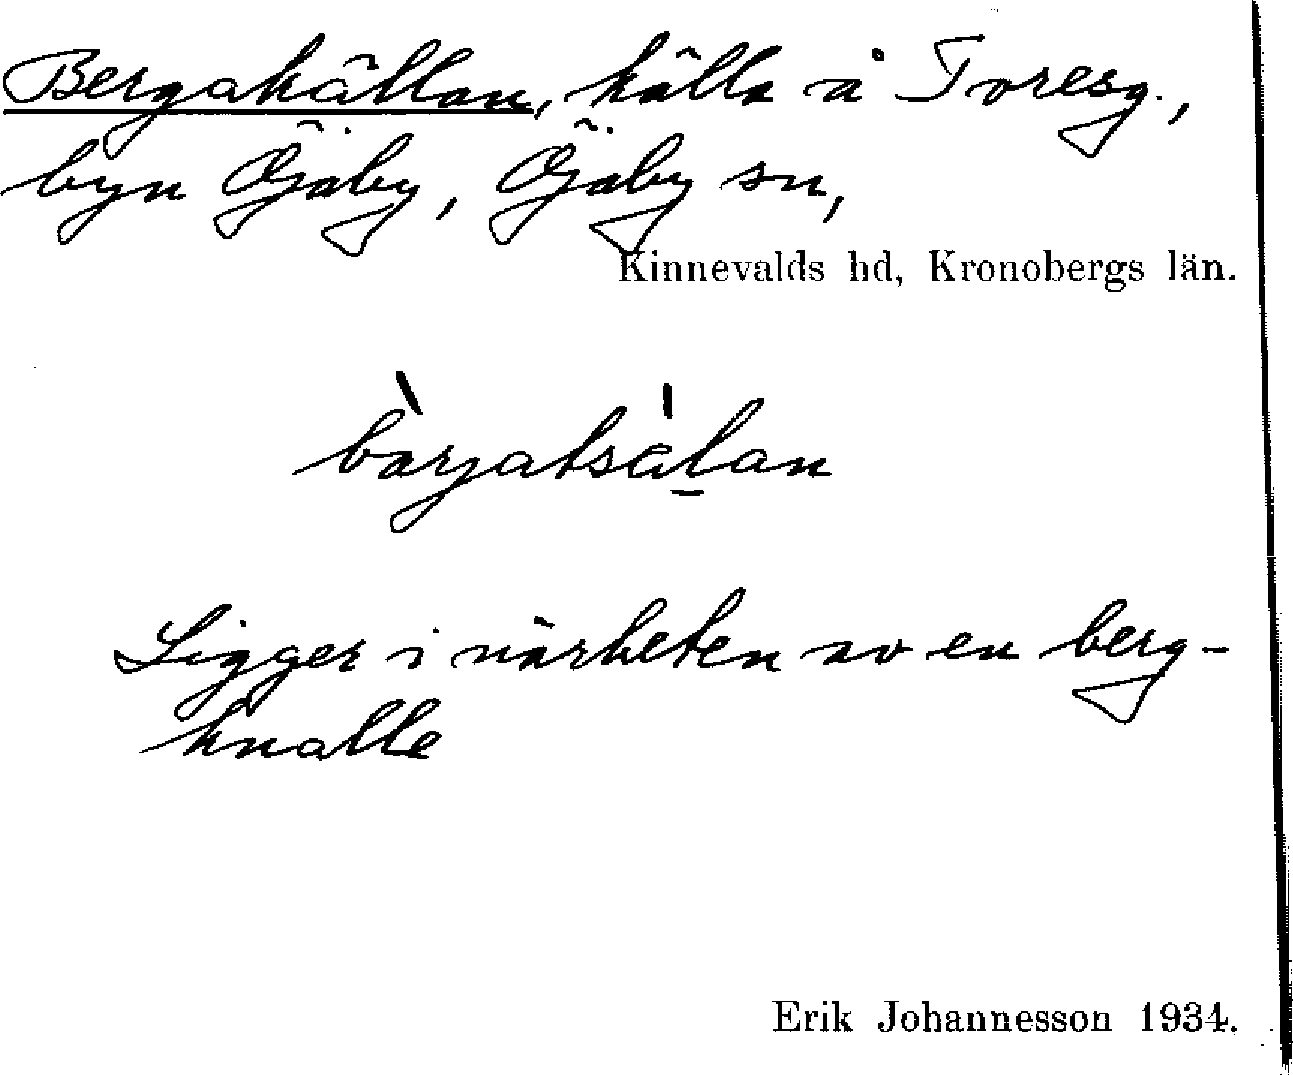 Bergakällan, källa å Toresg.,
byn Öjaby, Öjaby sn,
Kinnevalds hd, Kronobergs län.
bàrjatsälan
Ligger i närheten av en berg-
knalle
Erik Johannesson 1934.